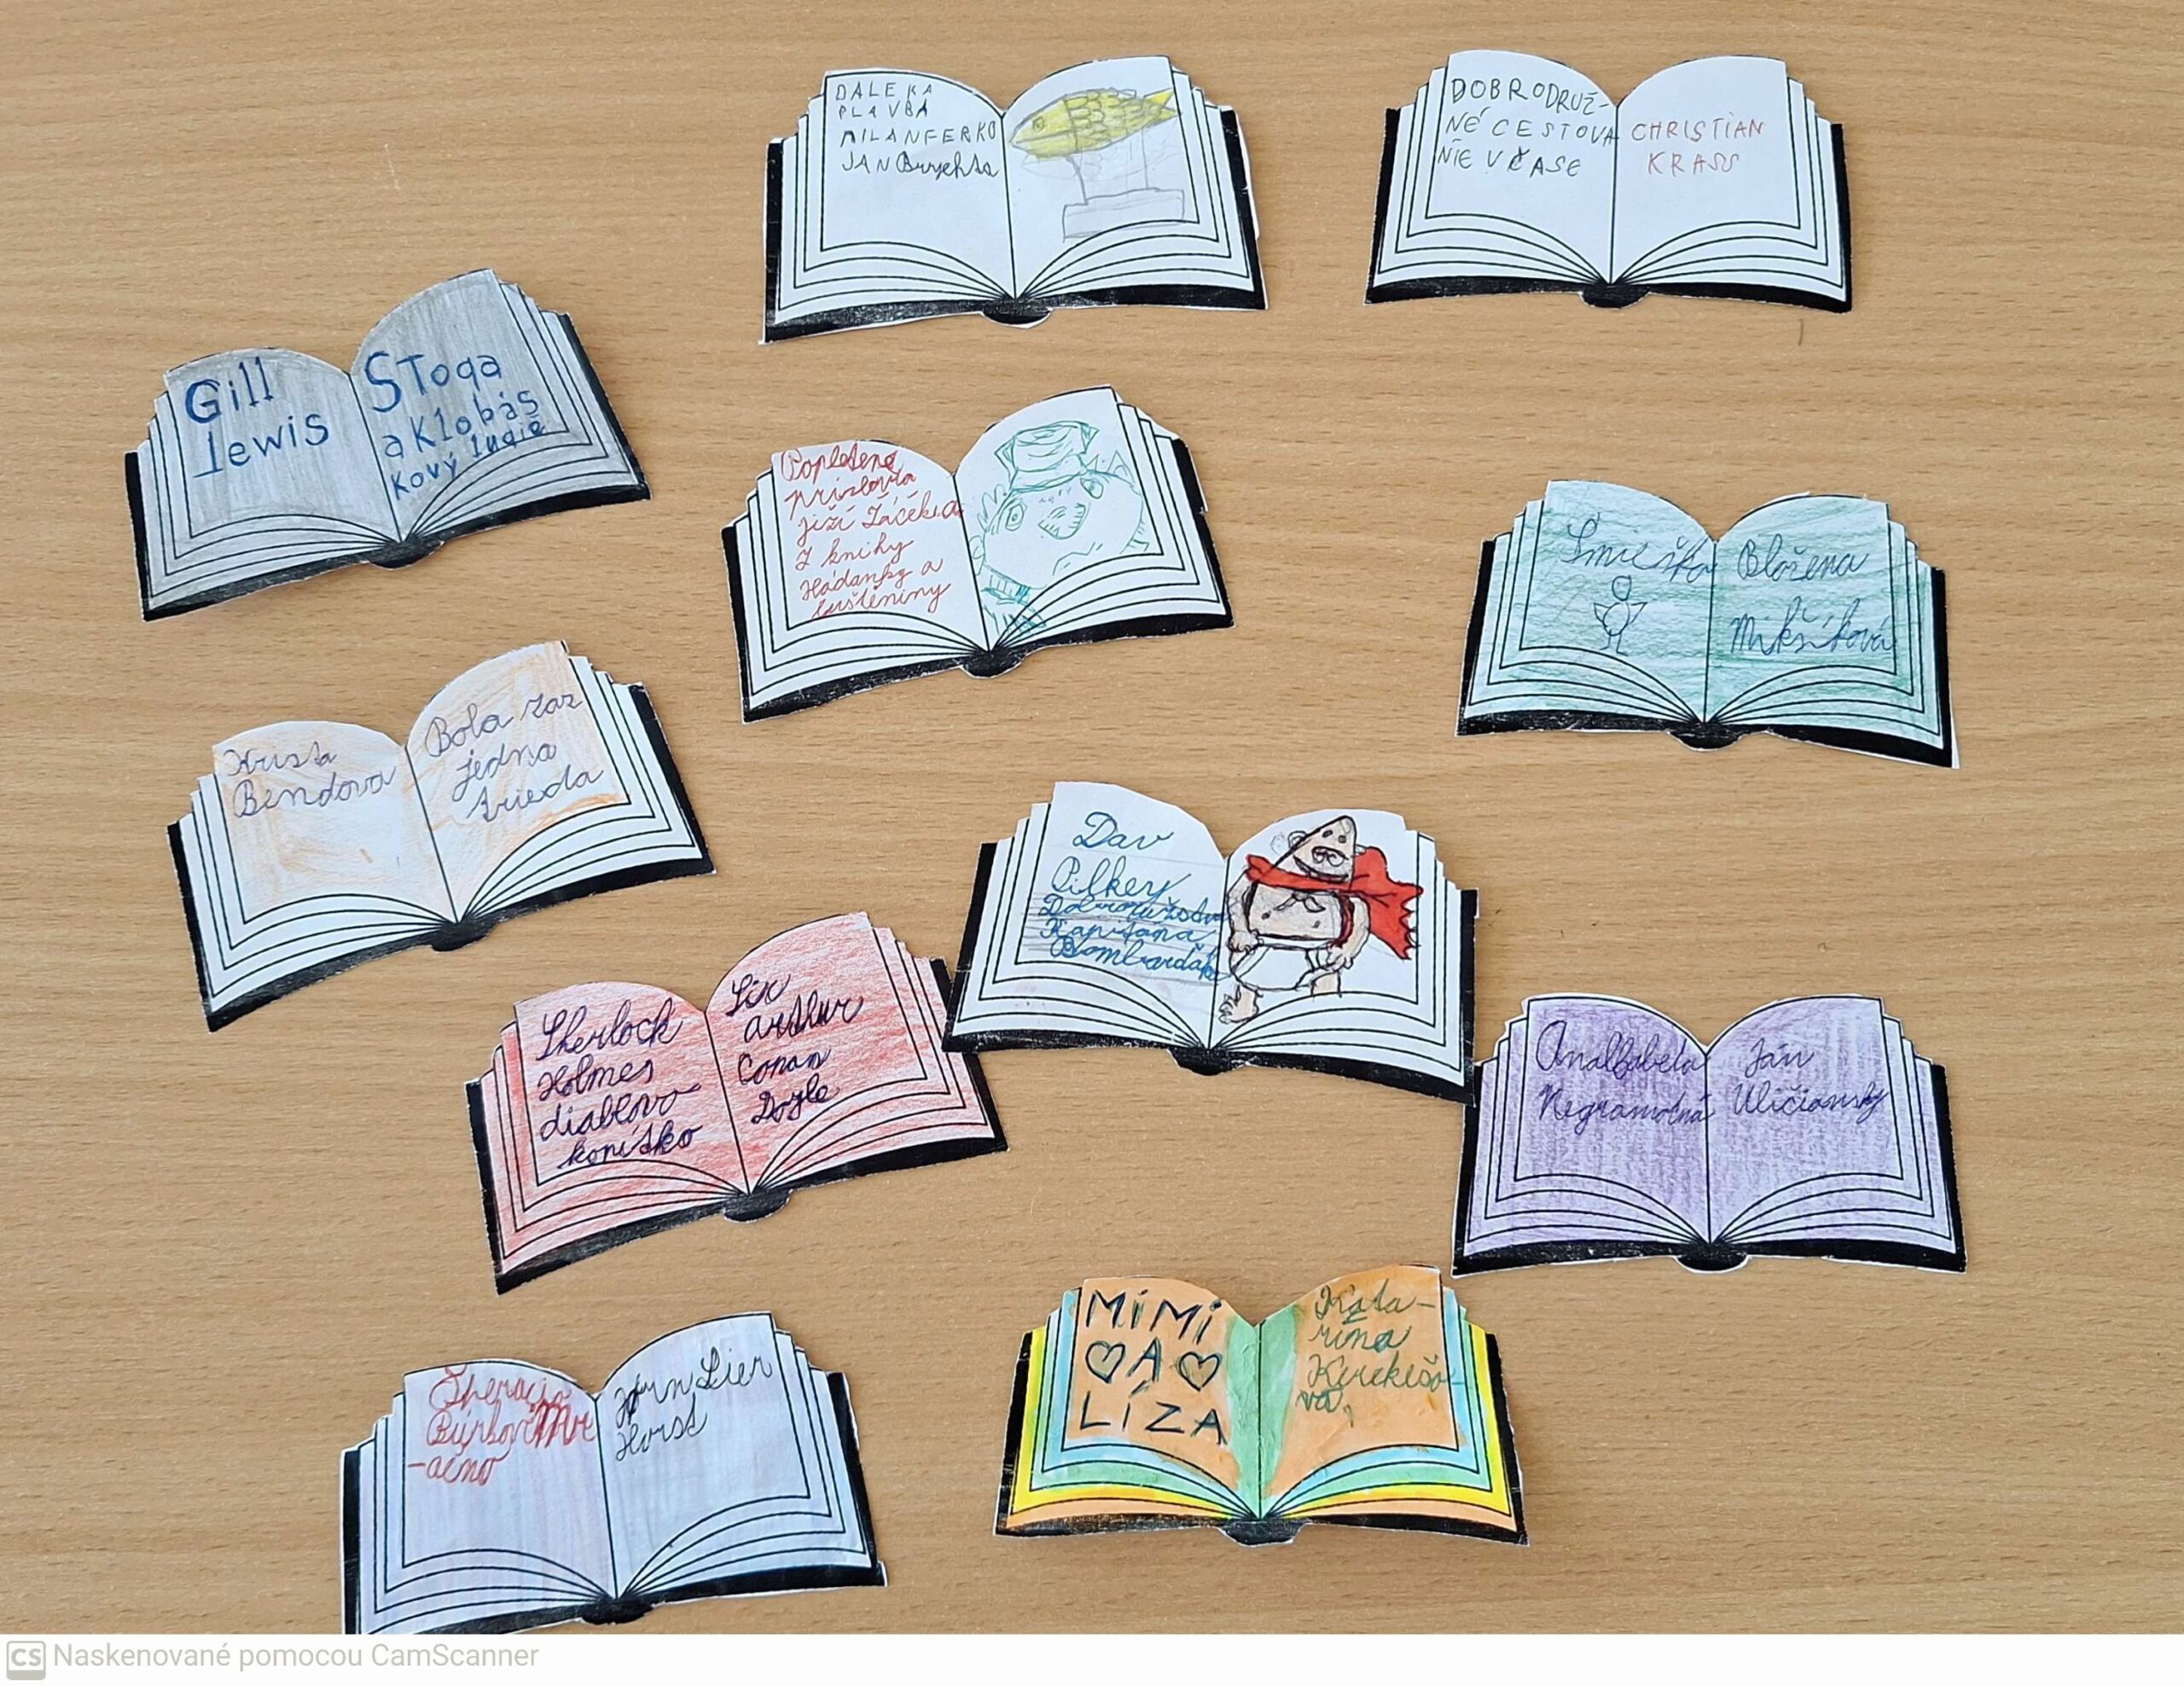 DALEKA
PLAVBA
MILAN FERKO
JAN Brychta
DOBRODRUŽ-
NÉ CESTOVA
NIE V ČASE
CHRISTIAN
KRASS
Gill
lewis
SToqa
a Klobás
Kový
Popletená
přísloví
Jiří Žáček a
Z knihy
Hádanky a
luštěniny
Smieško
Blažena
Mikšíková
Krista
Bendova
Bola raz
jedna
trieda
Dav
Pilkey
Dobrodružstvá
Kapitána
Bombarďák
Sherlock
Holmes
diablovo
kopítko
Sir
arthur
Conan
Doyle
Analfabeta
Negramotná
Ján
Uličiansky
MiMi
A
LÍZA
Kata-
rína
Kerekešo-
vá
Operácia
Lier
Horst
CS Naskenované pomocou CamScanner